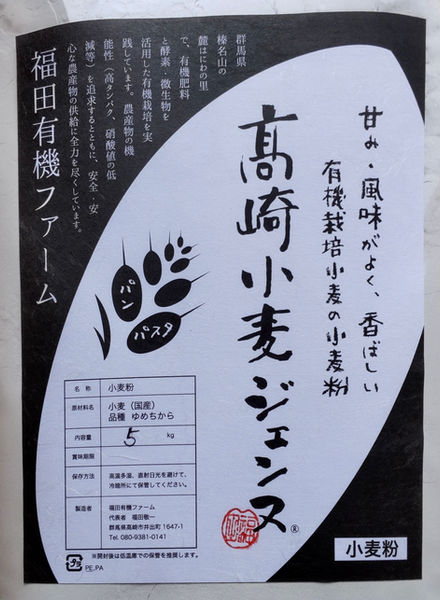 甘み・風味がよく、香ばしい
有機栽培小麦の小麦粉
高崎小麦ジェンヌ®
群馬県
榛名山の
麓はにわの里
で、有機肥料
と酵素・微生物を
活用した有機栽培を実
践しています。農産物の機
能性（高タンパク、硝酸値の低
減等）を追求するとともに、安全・安
心な農産物の供給に全力を尽くしています。
福田有機ファーム
パン
パスタ
名 称 小麦粉
原材料名 小麦（国産）
品種 ゆめちから
内容量 5 kg
賞味期限
保存方法 高温多湿、直射日光を避けて、
冷暗所にて保管してください。
製造者 福田有機ファーム
代表者 福田敬一
群馬県高崎市井出町1647-1
Tel. 080-9381-0141
※開封後は低温庫での保管を推奨します。
プラ
PE,PA
小麦粉